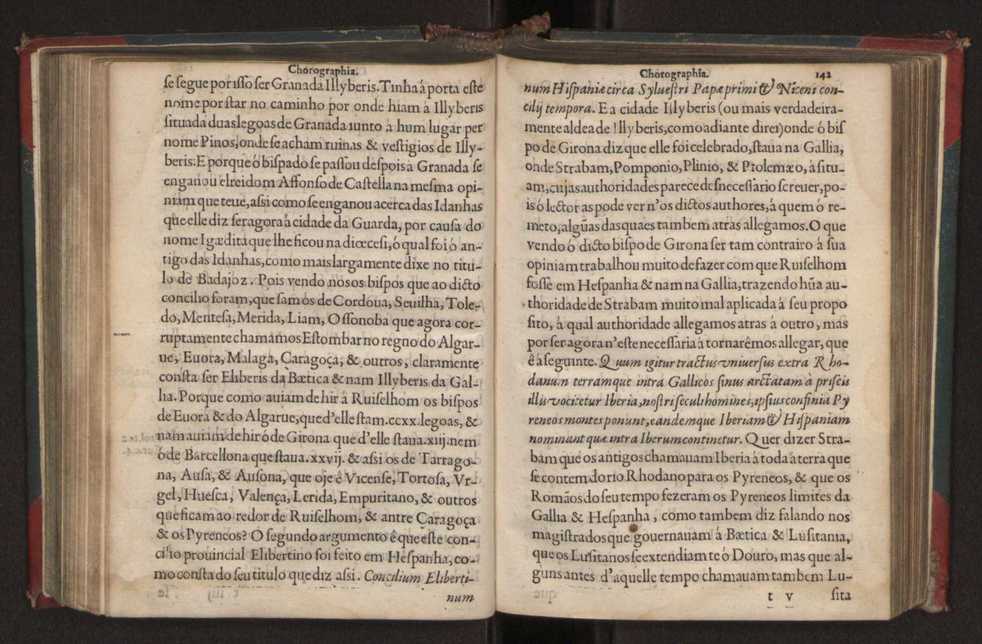 Chorographia.
se segue por isso ser Granada Illyberis. Tinha à porta este
nome por star no caminho por onde hiam à Illyberis
situada duas legoas de Granada iunto à hum lugar per
nome Pinos, onde se acham ruinas & vestigios de Illy-
beris: E porque ó bispado se passou despois à Granada se
enganou elrei dom Affonso de Castella na mesma opi-
niam que teue, assi como se enganou acerca das Idanhas
que elle diz ser agora á cidade da Guarda, por causa do
nome Igædita que lhe ficou na diœcesi, ó qual foi ó an-
tigo das Idanhas, como mais largamente dixe no titu-
lo de Badajoz. Pois vendo nòs os bispos que ao dicto
concilio foram, que sam ós de Cordoua, Seuilha, Tole-
do, Mentesa, Merida, Liam, Ossonoba que agora cor-
ruptamente chamàmos Estombar no regno do Algar-
ue, Euora, Malaga, Caragoça, & outros, claramente
consta ser Eliberis da Bætica & nam Illyberis da Gal-
lia. Porque como auiam de hir á Ruiselhom os bispos
de Euora & do Algarue, que d'elle stam .ccxx. legoas, &
nam auiam de hir ó de Girona que d'elle staua .xiij. nem
ó de Barcellona que staua .xxvij. & assi os de Tarrago-
na, Ausa, & Ausona, que oje é Vicense, Tortosa, Vr-
gel, Huesca, Valença, Lerida, Empuritano, & outros
que ficam ao redor de Ruiselhom, & antre Caragoça
& os Pyreneos? O segundo argumento é que este con-
cilio prouincial Elibertino foi feito em Hespanha, co-
mo consta do seu titulo que diz assi. Concilium Eliberti-
num
Chorographia. 142
num Hispaniæ circa Syluestri Papæ primi & Niceni con-
cilij tempora. E a cidade Illyberis (ou mais verdadeira-
mente aldea de Illyberis, como adiante direi) onde ó bis
po de Girona diz que elle foi celebrado, staua na Gallia,
onde Strabam, Pomponio, Plinio, & Ptolemæo, á situ-
am, cujas authoridades parece desnecessario screuer, po-
is ó lector as pode ver n'os dictos authores, à quem ó re-
meto, algũas das quaes tambem atras allegamos. O que
vendo ó dicto bispo de Girona ser tam contrairo á sua
opiniam trabalhou muito de fazer com que Ruiselhom
fosse em Hespanha & nam na Gallia, trazendo hũa au-
thoridade de Strabam muito mal aplicada á seu propo
sito, á qual authoridade allegamos atras á outro, mas
por ser agora n'este necessaria à tornarêmos allegar, que
é à seguinte. Quum igitur tractus vniuersus extra Rho-
danum terramque intra Gallicos sinus arctatam à priscis
illis vocitetur Iberia, nostri seculi homines, ipsius confinia Py
reneos montes ponunt, eandemque Iberiam & Hispaniam
nominant quæ intra Iberum continetur. Quer dizer Stra-
bam que os antigos chamauam Iberia à toda à terra que
se contem do rio Rhodano para os Pyreneos, & que os
Romãos do seu tempo fezeram os Pyreneos limites da
Gallia & Hespanha, como tambem diz falando nos
magistrados que gouernauam á Bætica & Lusitania,
que os Lusitanos se extendiam te ó Douro, mas que al-
guns antes d'aquelle tempo chamauam tambem Lu-
t v sita